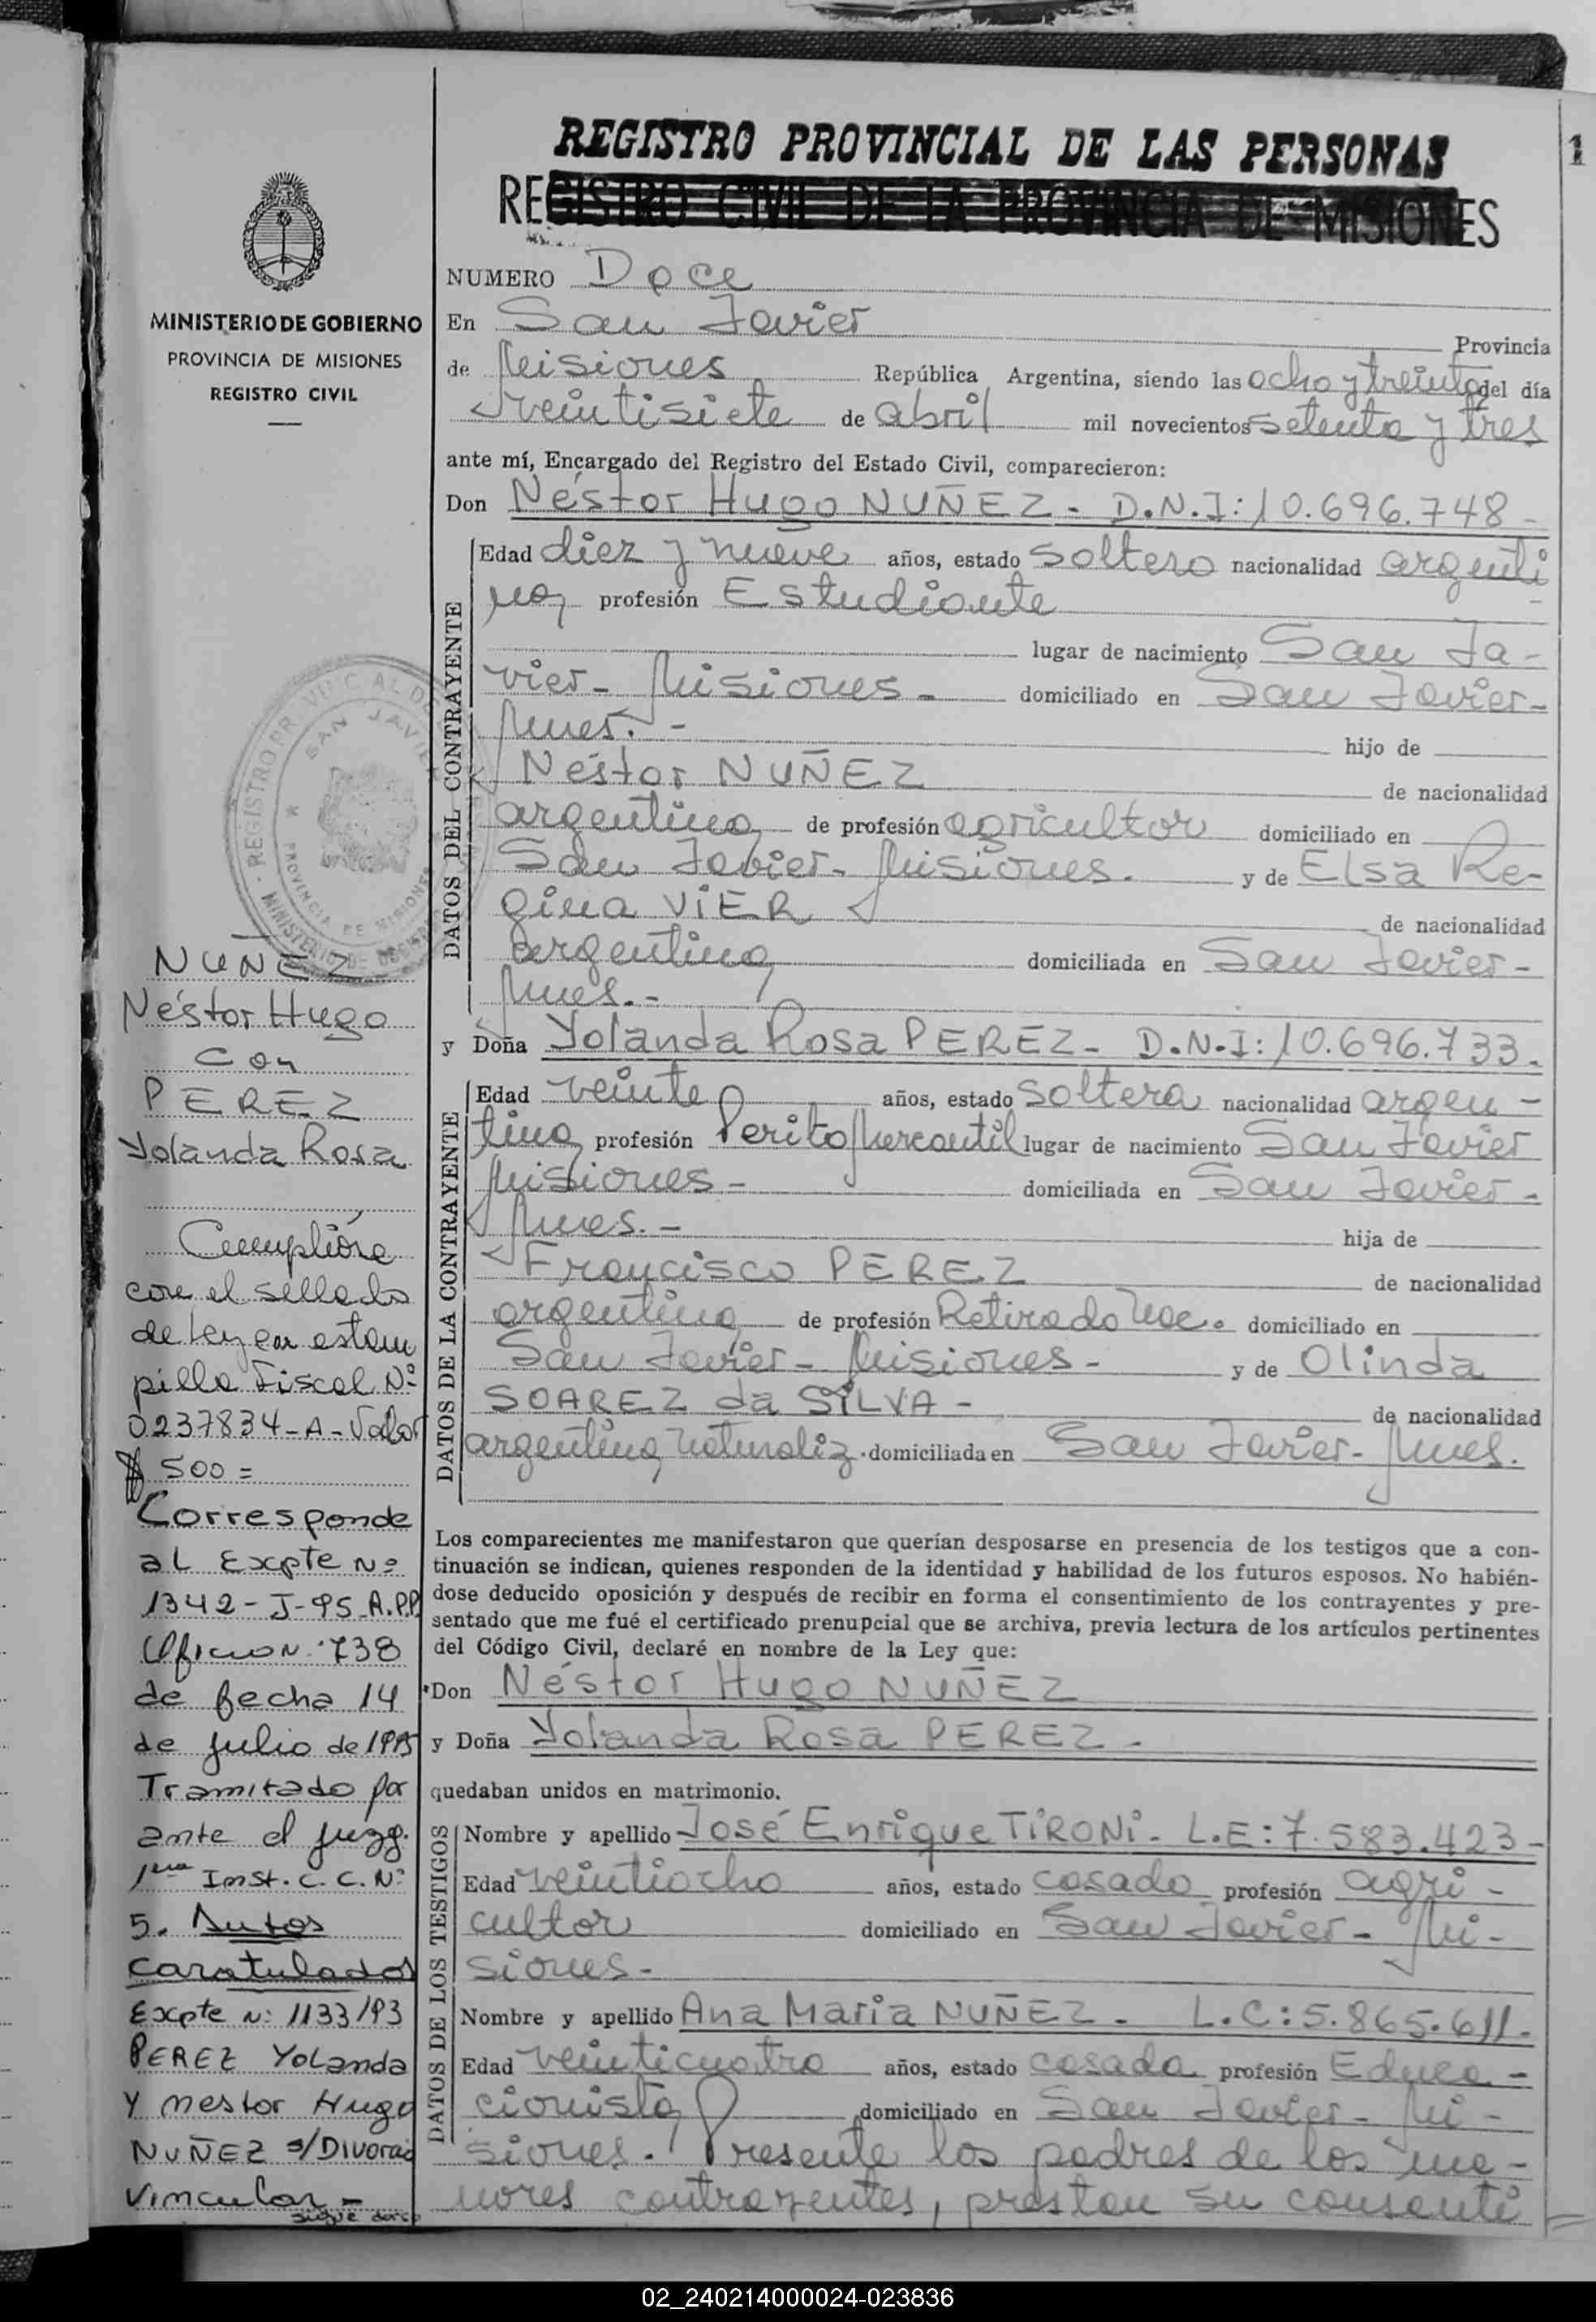 REGISTRO PROVINCIAL DE LAS PERSONAS
1
REGISTRO CIVIL DE LA PROVINCIA DE MISIONES
MINISTERIO DE GOBIERNO
PROVINCIA DE MISIONES
REGISTRO CIVIL
NUMERO Doce
En San Javier Provincia
de Misiones República Argentina, siendo las ocho y treinta del día
veintisiete de abril mil novecientos setenta y tres
ante mí, Encargado del Registro del Estado Civil, comparecieron:
Don Néstor Hugo NUÑEZ - D.N.I: 10.696.748 -
DATOS DEL CONTRAYENTE
Edad diez y nueve años, estado soltero nacionalidad argenti
na profesión Estudiante
lugar de nacimiento San Ja-
vier - Misiones - domiciliado en San Javier -
Mnes. - hijo de
Néstor NUÑEZ de nacionalidad
argentina de profesión agricultor domiciliado en
San Javier - Misiones. y de Elsa Re-
gina VIER de nacionalidad
argentina domiciliada en San Javier -
Mnes. -
y Doña Yolanda Rosa PEREZ - D.N.I: 10.696.733.
DATOS DE LA CONTRAYENTE
Edad veinte años, estado soltera nacionalidad argen -
tina profesión Perito Mercantil lugar de nacimiento San Javier
Misiones - domiciliada en San Javier -
Mnes. - hija de
Francisco PEREZ de nacionalidad
argentina de profesión Retirado Nac. domiciliado en
San Javier - Misiones - y de Olinda
SOAREZ da SILVA - de nacionalidad
argentina naturaliz. domiciliada en San Javier - Mnes.
Los comparecientes me manifestaron que querían desposarse en presencia de los testigos que a con-
tinuación se indican, quienes responden de la identidad y habilidad de los futuros esposos. No habién-
dose deducido oposición y después de recibir en forma el consentimiento de los contrayentes y pre-
sentado que me fué el certificado prenupcial que se archiva, previa lectura de los artículos pertinentes
del Código Civil, declaré en nombre de la Ley que:
Don Néstor Hugo NUÑEZ
y Doña Yolanda Rosa PEREZ -
quedaban unidos en matrimonio.
DATOS DE LOS TESTIGOS
Nombre y apellido José Enrique TIRONI - L.E: 7.583.423 -
Edad veintiocho años, estado casado profesión agri -
cultor domiciliado en San Javier - Mi -
siones -
Nombre y apellido Ana Maria NUÑEZ - L.C: 5.865.611.
Edad veinticuatro años, estado casada profesión Educa -
cionista domiciliado en San Javier - Mi -
siones. Presente los padres de los me -
nores contrayentes, prestan su consenti
NUÑEZ
Néstor Hugo
con
PEREZ
Yolanda Rosa
Cumplióse
con el sellado
de Ley en estam
pilla Fiscal Nº
0237834 - A - Valor
$ 500 =
Corresponde
al Expte Nº
1342 - J - 95 A.P.P.
Oficio Nº 738
de fecha 14
de julio de 1995
Tramitado por
ante el juzg.
1era Inst. C. C. Nº
5. Autos
caratulados
Expte Nº 1133/93
PEREZ Yolanda
y nestor Hugo
NUÑEZ s/Divorcio
Vincular -
sigue dorso
02_240214000024-023836